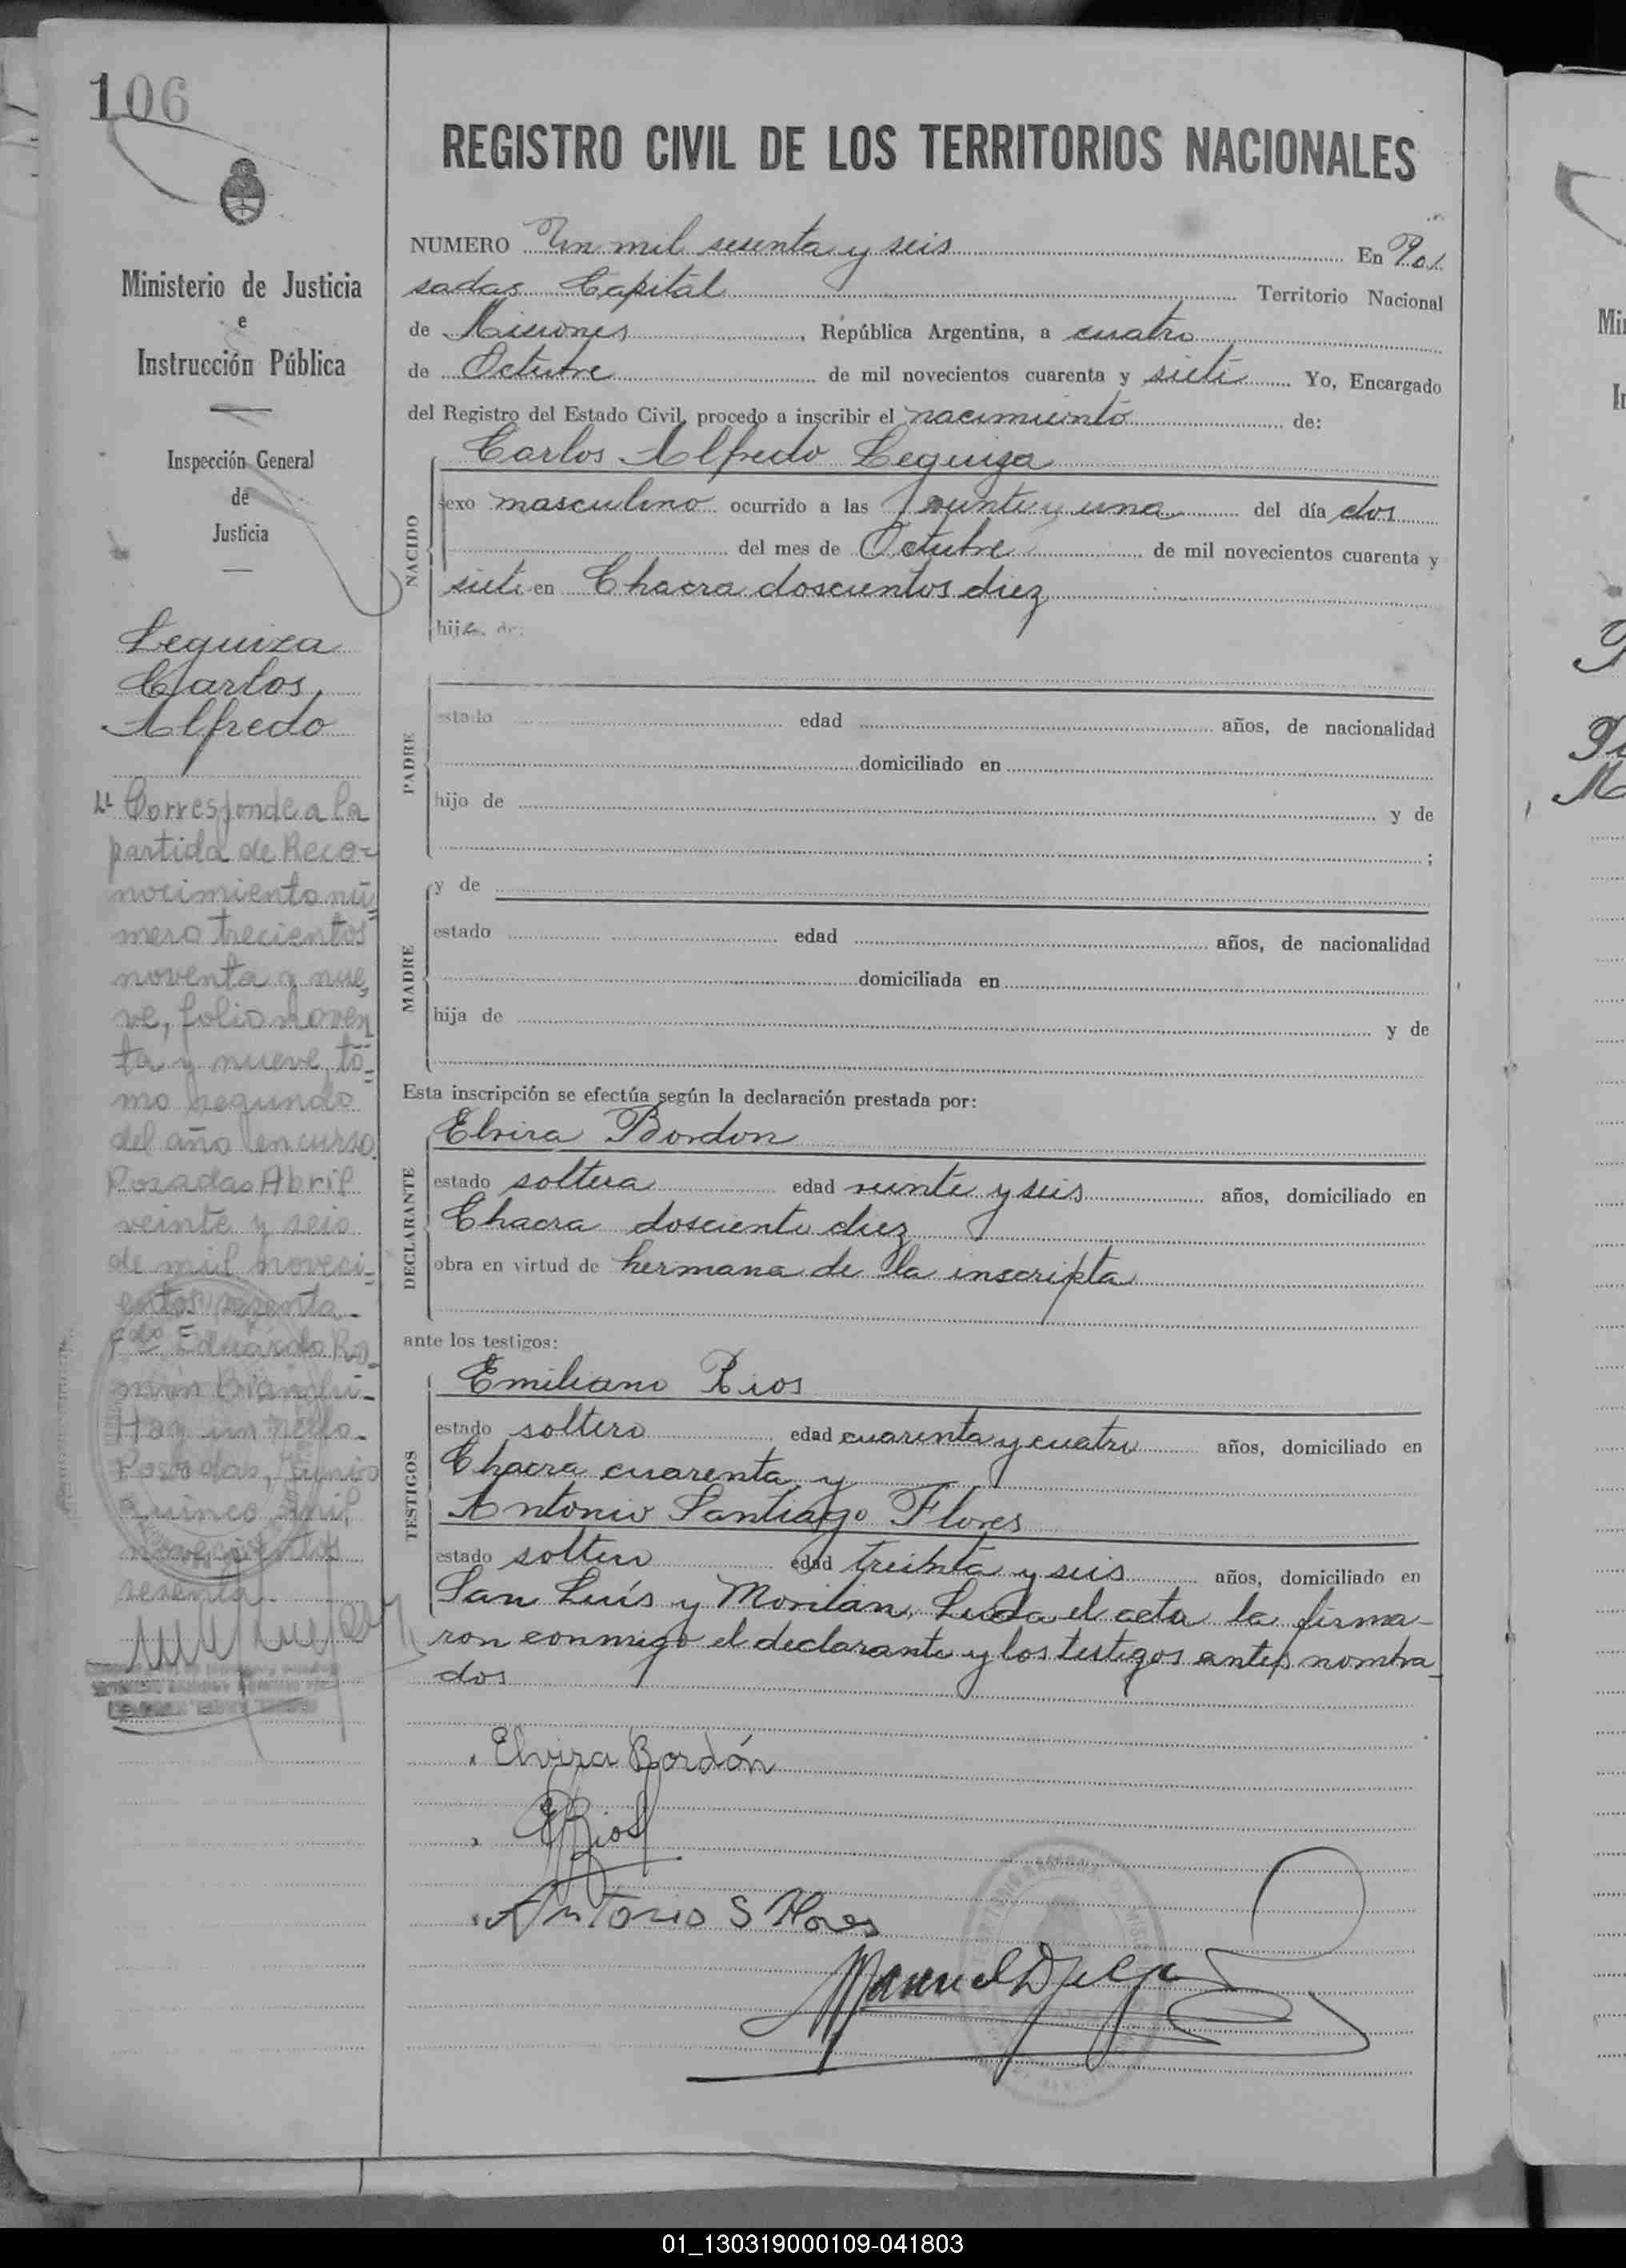 106
REGISTRO CIVIL DE LOS TERRITORIOS NACIONALES
Ministerio de Justicia
e
Instrucción Pública
Inspección General
de
Justicia
Leguiza
Carlos
Alfredo
Corresponde a la
partida de Reco-
nocimiento nú-
mero trecientos
noventa y nue
ve, folio noven
ta y nueve, to-
mo segundo
del año en curso
Posadas Abril
veinte y seis
de mil noveci-
entos sesenta.
Fdo = Eduardo Ro-
mán Bianchi-
Hay un sello.
Posadas, Junio
quince mil
novecientos
sesenta.
NUMERO Un mil sesenta y seis En Po/
sadas Capital Territorio Nacional
de Misiones, República Argentina, a cuatro
de Octubre de mil novecientos cuarenta y siete Yo, Encargado
del Registro del Estado Civil, procedo a inscribir el nacimiento de:
Carlos Alfredo Leguiza
NACIDO
sexo masculino ocurrido a las veinte y una del día dos
del mes de Octubre de mil novecientos cuarenta y
siete en Chacra doscientos diez
hijo de:
PADRE
estado edad años, de nacionalidad
domiciliado en
hijo de y de
;
MADRE
y de
estado edad años, de nacionalidad
domiciliada en
hija de y de
Esta inscripción se efectúa según la declaración prestada por:
DECLARANTE
Elvira Bordon
estado soltera edad veinte y seis años, domiciliado en
Chacra dosciento diez
obra en virtud de hermana de la inscripta
ante los testigos:
TESTIGOS
Emiliano Rios
estado soltero edad cuarenta y cuatro años, domiciliado en
Chacra cuarenta y
Antonio Santiago Flores
estado soltero edad treinta y seis años, domiciliado en
San Luís y Morilan, Leida el acta la firma-
ron conmigo el declarante y los testigos antes nombra-
dos
Elvira Bordón
E Rios
Antonio S Flores
Manuel
01_130319000109-041803